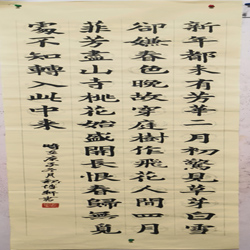 新年都未有芳華二月初驚見草芽白雪
卻嫌春色晚故穿庭樹作飛花人間四月
菲芳盡山寺桃花始盛開長恨春歸無覓
處不知轉入此中來